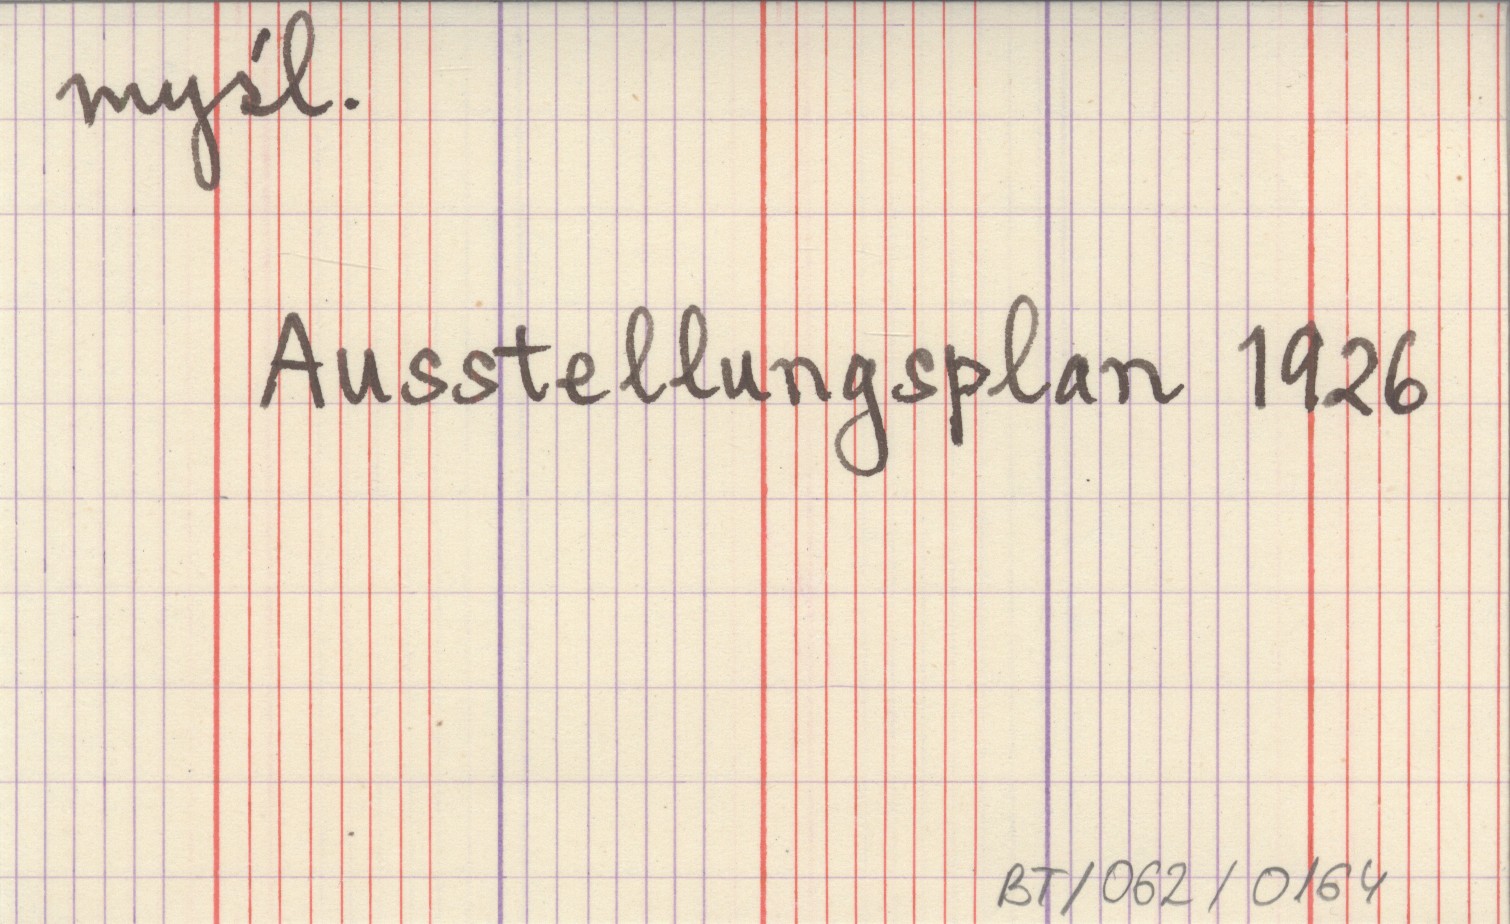 myśl.
Ausstellungsplan 1926
BT/062/0164